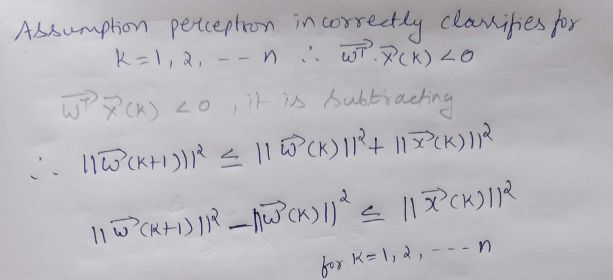 Assumption perceptron incorrectly classifies for
k = 1, 2, -- n ∴ w⃗ᵀ. x⃗(k) < 0
w⃗ᵀ x⃗(k) < 0 , it is subtracting
∴ ||w⃗(k+1)||² ≤ ||w⃗(k)||² + ||x⃗(k)||²
||w⃗(k+1)||² - ||w⃗(k)||² ≤ ||x⃗(k)||²
for k = 1, 2, --- n